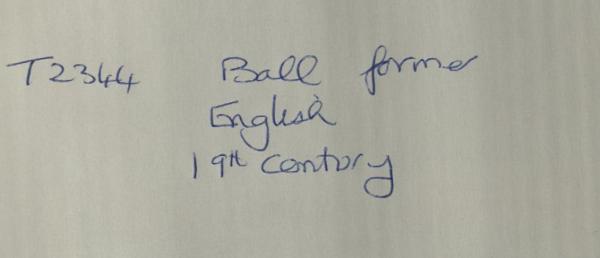 T2344 Ball former
English
19th Century